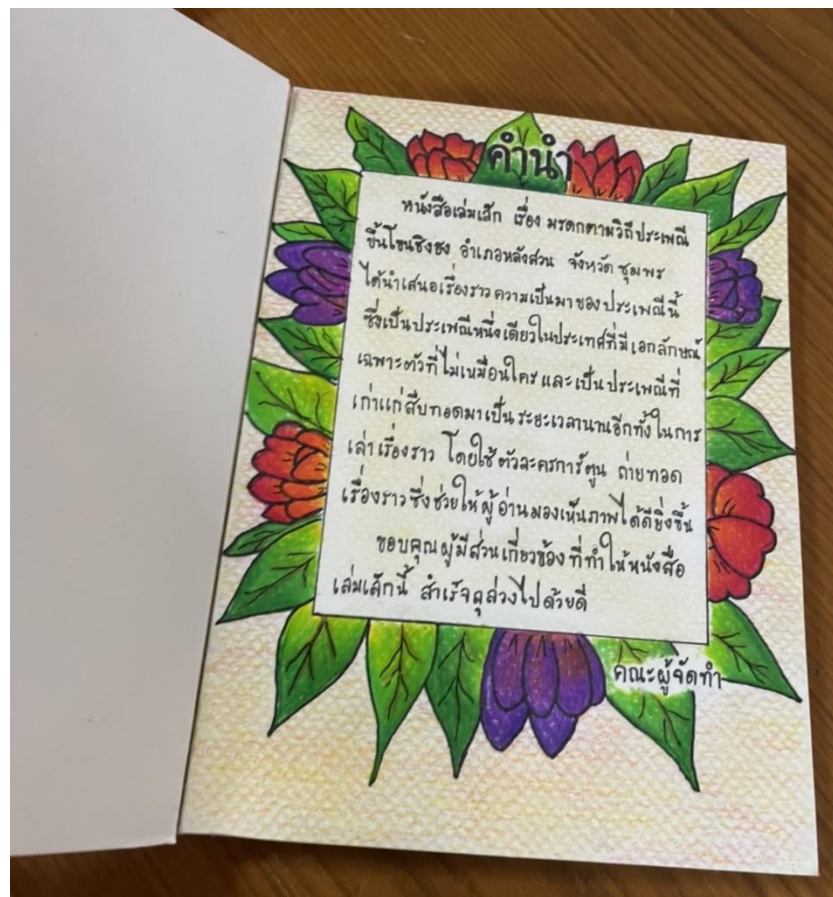 คำนำ
หนังสือเล่มเล็ก เรื่อง มรดกตามวิถีประเพณี
ขึ้นโขนชิงธง อำเภอหลังสวน จังหวัดชุมพร
ได้นำเสนอเรื่องราวความเป็นมาของประเพณีนี้
ซึ่งเป็นประเพณีหนึ่งเดียวในประเทศที่มีเอกลักษณ์
เฉพาะตัวที่ไม่เหมือนใคร และเป็นประเพณีที่
เก่าแก่สืบทอดมาเป็นระยะเวลานานอีกทั้งในการ
เล่าเรื่องราว โดยใช้ตัวละครการ์ตูน ถ่ายทอด
เรื่องราวซึ่งช่วยให้ผู้อ่านมองเห็นภาพได้ดียิ่งขึ้น
ขอบคุณผู้มีส่วนเกี่ยวข้องที่ทำให้หนังสือ
เล่มเล็กนี้ สำเร็จลุล่วงไปด้วยดี
คณะผู้จัดทำ